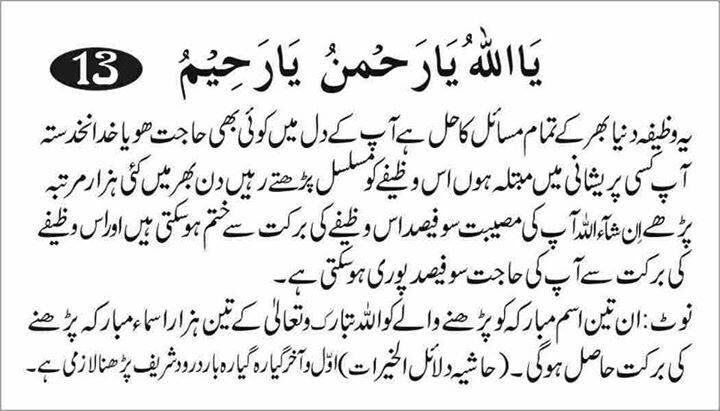 یَا اَللّٰهُ یَارَحْمٰنُ یَارَحِیْمُ 13
یہ وظیفہ دنیا بھر کے تمام مسائل کا حل ہے آپ کے دل میں کوئی بھی حاجت ھو یا خدانخدستہ
آپ کسی پریشانی میں مبتلہ ہوں اس وظیفے کو مسلسل پڑھتے رہیں دن بھر میں کئی ہزار مرتبہ
پڑھے اِن شآءاللہ آپ کی مصیبت سو فیصد اس وظیفے کی برکت سے ختم ہوسکتی ہیں اور اس وظیفے
کی برکت سے آپ کی حاجت سو فیصد پوری ہوسکتی ہے۔
نوٹ: ان تین اسم مبارکہ کو پڑھنے والے کو اللہ تبارک وتعالیٰ کے تین ہزار اسماء مبارکہ پڑھنے
کی برکت حاصل ہوگی۔ (حاشیہ دلائل الخیرات) اوّل و آخر گیارہ گیارہ بار درود شریف پڑھنا لازمی ہے۔